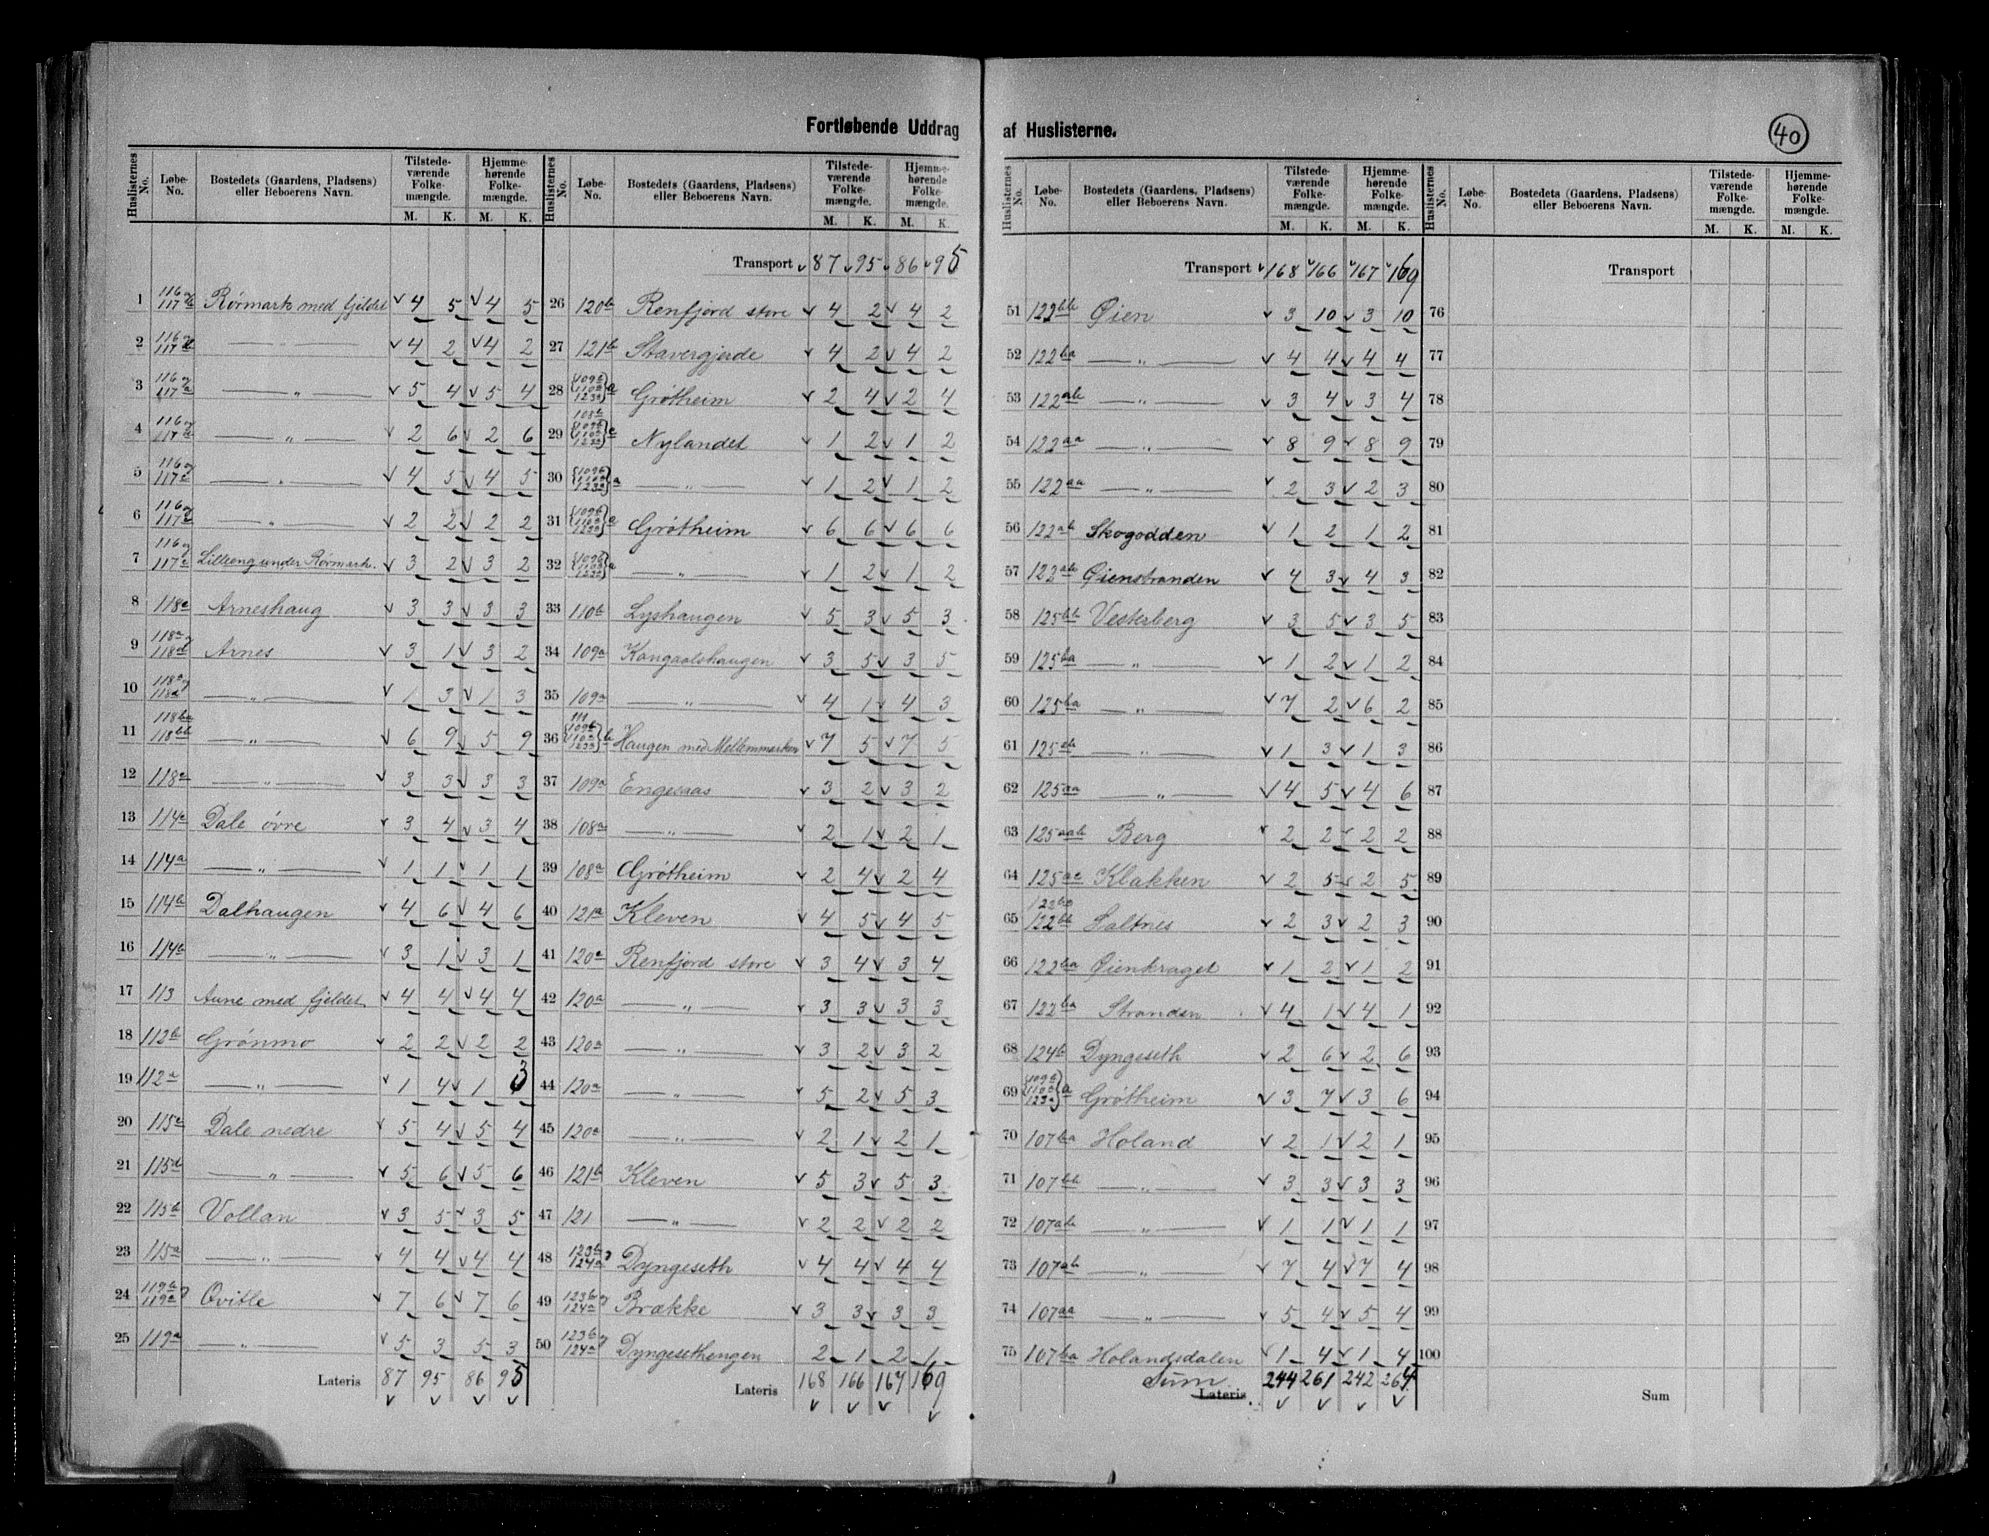 Fortløbende Uddrag af Huslisterne.
40
Huslisternes No. Løbe-No. Bostedets (Gaardens, Pladsens) eller Beboerens Navn. Tilstedeværende Folkemængde. M. K. Hjemmehørende Folkemængde. M. K.
1 116 og 117b Rørmark med fjeldet 4 5 4 5
2 116 og —„— 4 2 4 2
3 116 og 117a —„— 5 4 5 4
4 116 og —„— 2 6 2 6
5 116 og —„— 4 5 4 5
6 116 og —„— 2 2 2 2
7 116 og 117a Lilleeng under Rørmark. 3 2 3 2
8 118a Arneshaug 3 3 3 3
9 118a og 118b Arnes 3 1 3 2
10 118a og —„— 1 3 1 3
11 118ba 118bb —„— 6 9 5 9
12 118a —„— 3 3 3 3
13 114a Dale øvre 3 4 3 4
14 114a —„— 1 1 1 1
15 114b Dalhaugen 4 6 4 6
16 114b —„— 3 1 3 1
17 113 Aune med fjeldet 4 4 4 4
18 112b Grønmo 2 2 2 2
19 112a —„— 1 4 1 3
20 115a Dale nedre 5 4 5 4
21 115b —„— 5 6 5 6
22 115b Vollan 3 5 3 5
23 115a —„— 4 4 4 4
24 119b 119a Qvitle 7 6 7 6
25 119a —„— 5 3 5 3
Lateris 87 95 86 95
Huslisternes No. Løbe-No. Bostedets (Gaardens, Pladsens) eller Beboerens Navn. Tilstedeværende Folkemængde. M. K. Hjemmehørende Folkemængde. M. K.
Transport 87 95 86 95
26 120b Renfjord store 4 2 4 2
27 121b Stavergjerde 4 2 4 2
28 {109b 110a 123a}a Grøtheim 2 4 2 4
29 108b {109b 110a 123a} Nylandet 1 2 1 2
30 {109b 110a 123a}a —„— 1 2 1 2
31 {109b 110a 123a}a Grøtheim 6 6 6 6
32 {109b 110a 123a}a —„— 1 2 1 2
33 110b Lyshaugen 5 3 5 3
34 109a Kongaolshaugen 3 5 3 5
35 109a —„— 4 1 4 3
36 111 {109b 110a 123a}b Haugen med Mellemmarken 7 5 7 5
37 109a Engesaas 3 2 3 2
38 108a —„— 2 1 2 1
39 108a Grøtheim 2 4 2 4
40 121a Kleven 4 5 4 5
41 120a Renfjord store 3 4 3 4
42 120a —„— 3 3 3 3
43 120a —„— 3 2 3 2
44 120a —„— 5 2 5 3
45 120a —„— 2 1 2 1
46 121b Kleven 5 3 5 3
47 121 —„— 2 2 2 2
48 123b 124a Dyngeseth 4 4 4 4
49 123b og 124a Brække 3 3 3 3
50 123b og 124a Dyngesethengen 2 1 2 1
Lateris 168 166 167 169
Huslisternes No. Løbe-No. Bostedets (Gaardens, Pladsens) eller Beboerens Navn. Tilstedeværende Folkemængde. M. K. Hjemmehørende Folkemængde. M. K.
Transport 168 166 167 169
51 122bb Øien 3 10 3 10
52 122ba —„— 4 4 4 4
53 122ab —„— 3 4 3 4
54 122aa —„— 8 9 8 9
55 122aa —„— 2 3 2 3
56 122ab Skogodden 1 2 1 2
57 122ab Øienstranden 4 3 4 3
58 125bb Vesterberg 3 5 3 5
59 125ba —„— 1 2 1 2
60 125ba —„— 7 2 6 2
61 125ab —„— 1 3 1 3
62 125aa —„— 4 5 4 6
63 125aab Berg 2 2 2 2
64 125aa Klakken 2 5 2 5
65 122ba 122bb Saltnes 2 3 2 3
66 122ba Øienkraget 1 2 1 2
67 122ba Stranden 4 1 4 1
68 124b Dyngeseth 2 6 2 6
69 {109b 110a 123a}a Grøtheim 3 7 3 6
70 107ba Holand 2 1 2 1
71 107bb —„— 3 3 3 3
72 107ab —„— 1 1 1 1
73 107ab —„— 7 4 7 4
74 107aa —„— 5 4 5 4
75 107ba Holandsdalen 1 4 1 4
Sum Lateris 244 261 242 264
Huslisternes No. Løbe-No. Bostedets (Gaardens, Pladsens) eller Beboerens Navn. Tilstedeværende Folkemængde. M. K. Hjemmehørende Folkemængde. M. K.
Transport
76
77
78
79
80
81
82
83
84
85
86
87
88
89
90
91
92
93
94
95
96
97
98
99
100
Sum